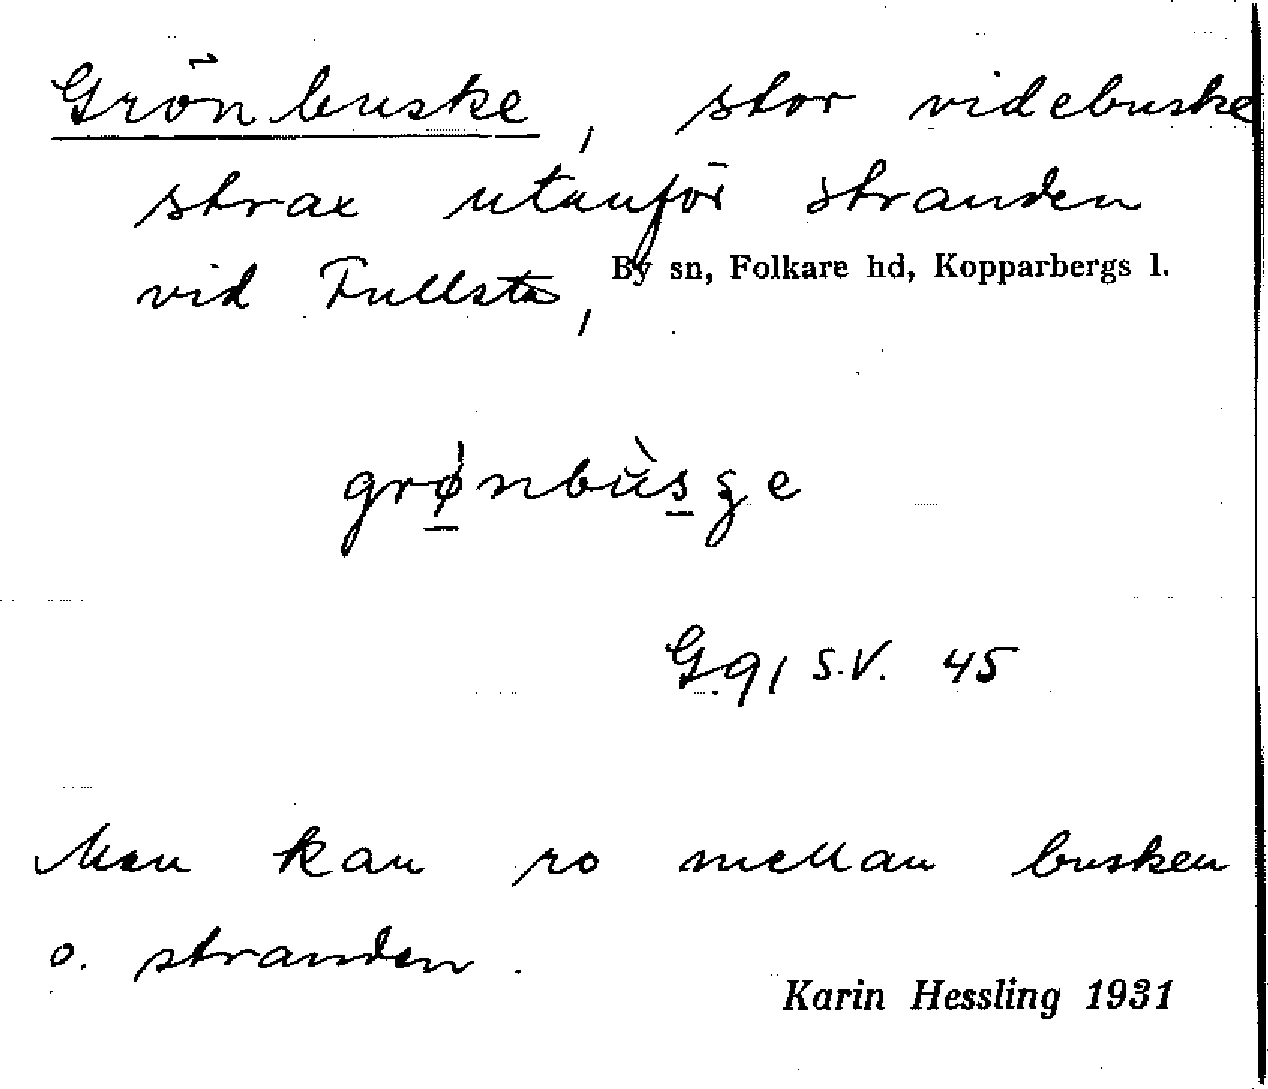 Grönbuske, stor videbuske
strax utanför stranden
vid Fullsta,
By sn, Folkare hd, Kopparbergs l.
grø̱nbùs̱ge
G.91 S.V. 45
Man kan ro mellan busken
o. stranden.
Karin Hessling 1931